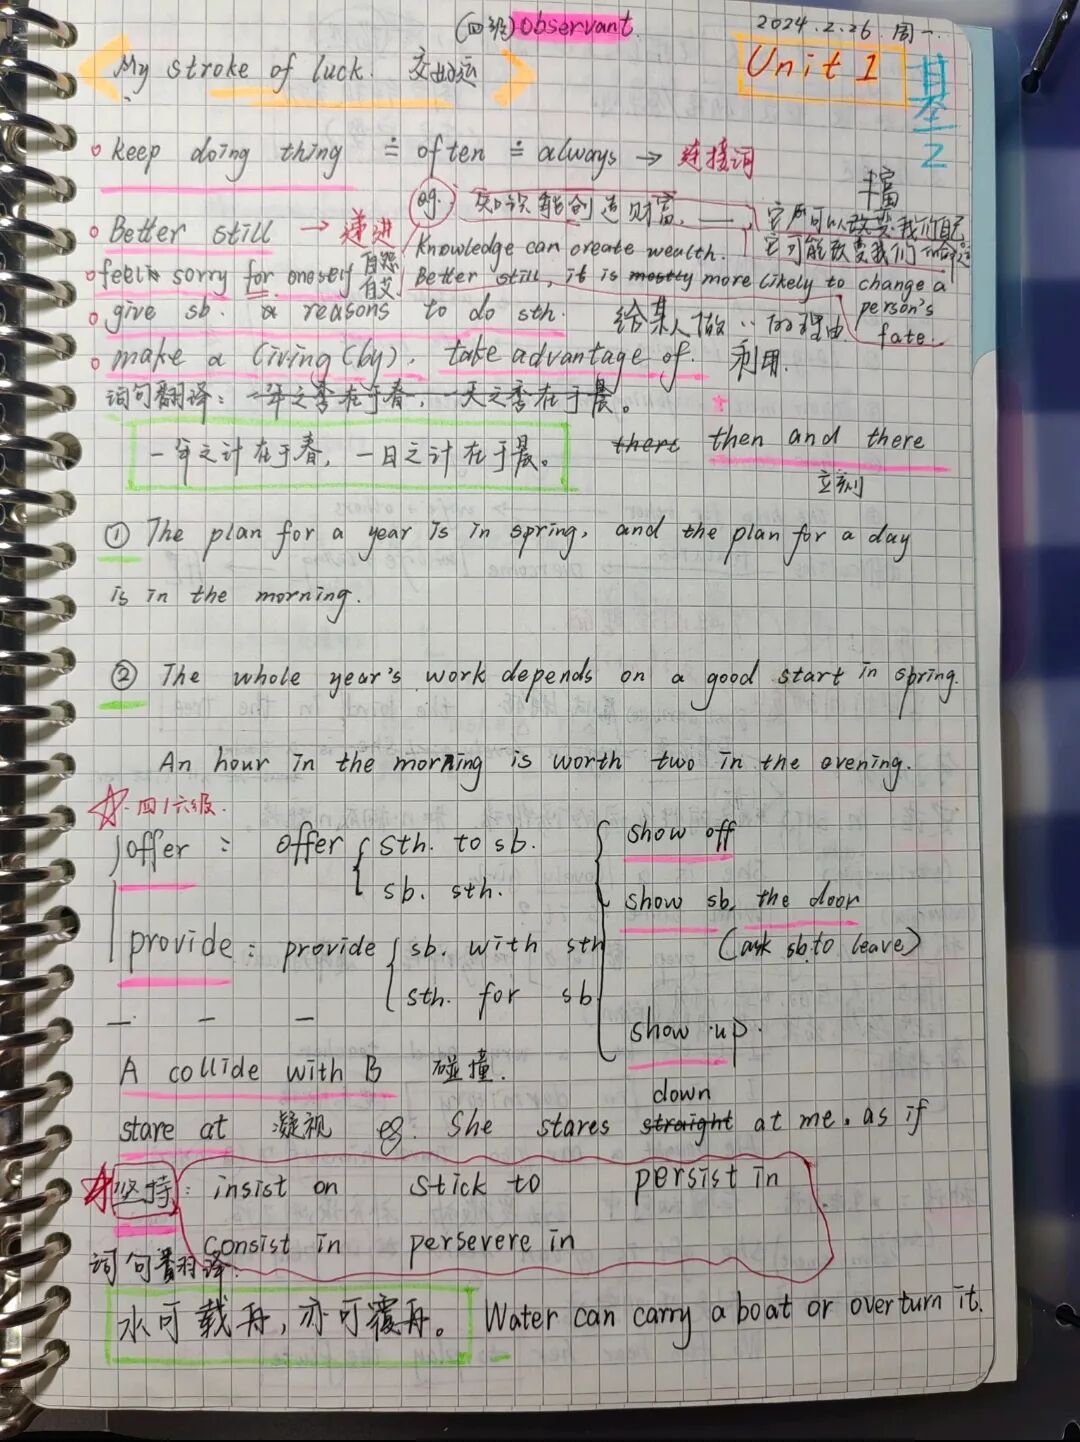 (四级) observant
2024.2.26 周一
My stroke of luck. 交好运
Unit 1
keep doing thing ≐ often ≐ always → 连接词
丰富
Better still → 递进
eg. 知识能创造财富, ——, 它可以改变我们自己
它可能改变我们命运
Knowledge can create wealth.
feel sorry for oneself 自怨自艾
Better still, it is mostly more likely to change a person's fate.
give sb. a reasons to do sth. 给某人做‥的理由
make a living (by). take advantage of. 利用.
词句翻译: 一年之季在于春, 一天之季在于晨。
一年之计在于春, 一日之计在于晨。
there then and there
立刻
① The plan for a year is in spring, and the plan for a day
is in the morning.
② The whole year's work depends on a good start in spring.
An hour in the morning is worth two in the evening.
☆·四/六级.
offer : offer { sth. to sb.
sb. sth.
provide : provide { sb. with sth
sth. for sb
show off
show sb. the door
(ask sb. to leave)
show up.
— — —
A collide with B 碰撞.
down
stare at 凝视 eg. She stares straight at me, as if
☆ 坚持: insist on stick to persist in
consist in persevere in
词句翻译:
水可载舟, 亦可覆舟。 Water can carry a boat or overturn it.